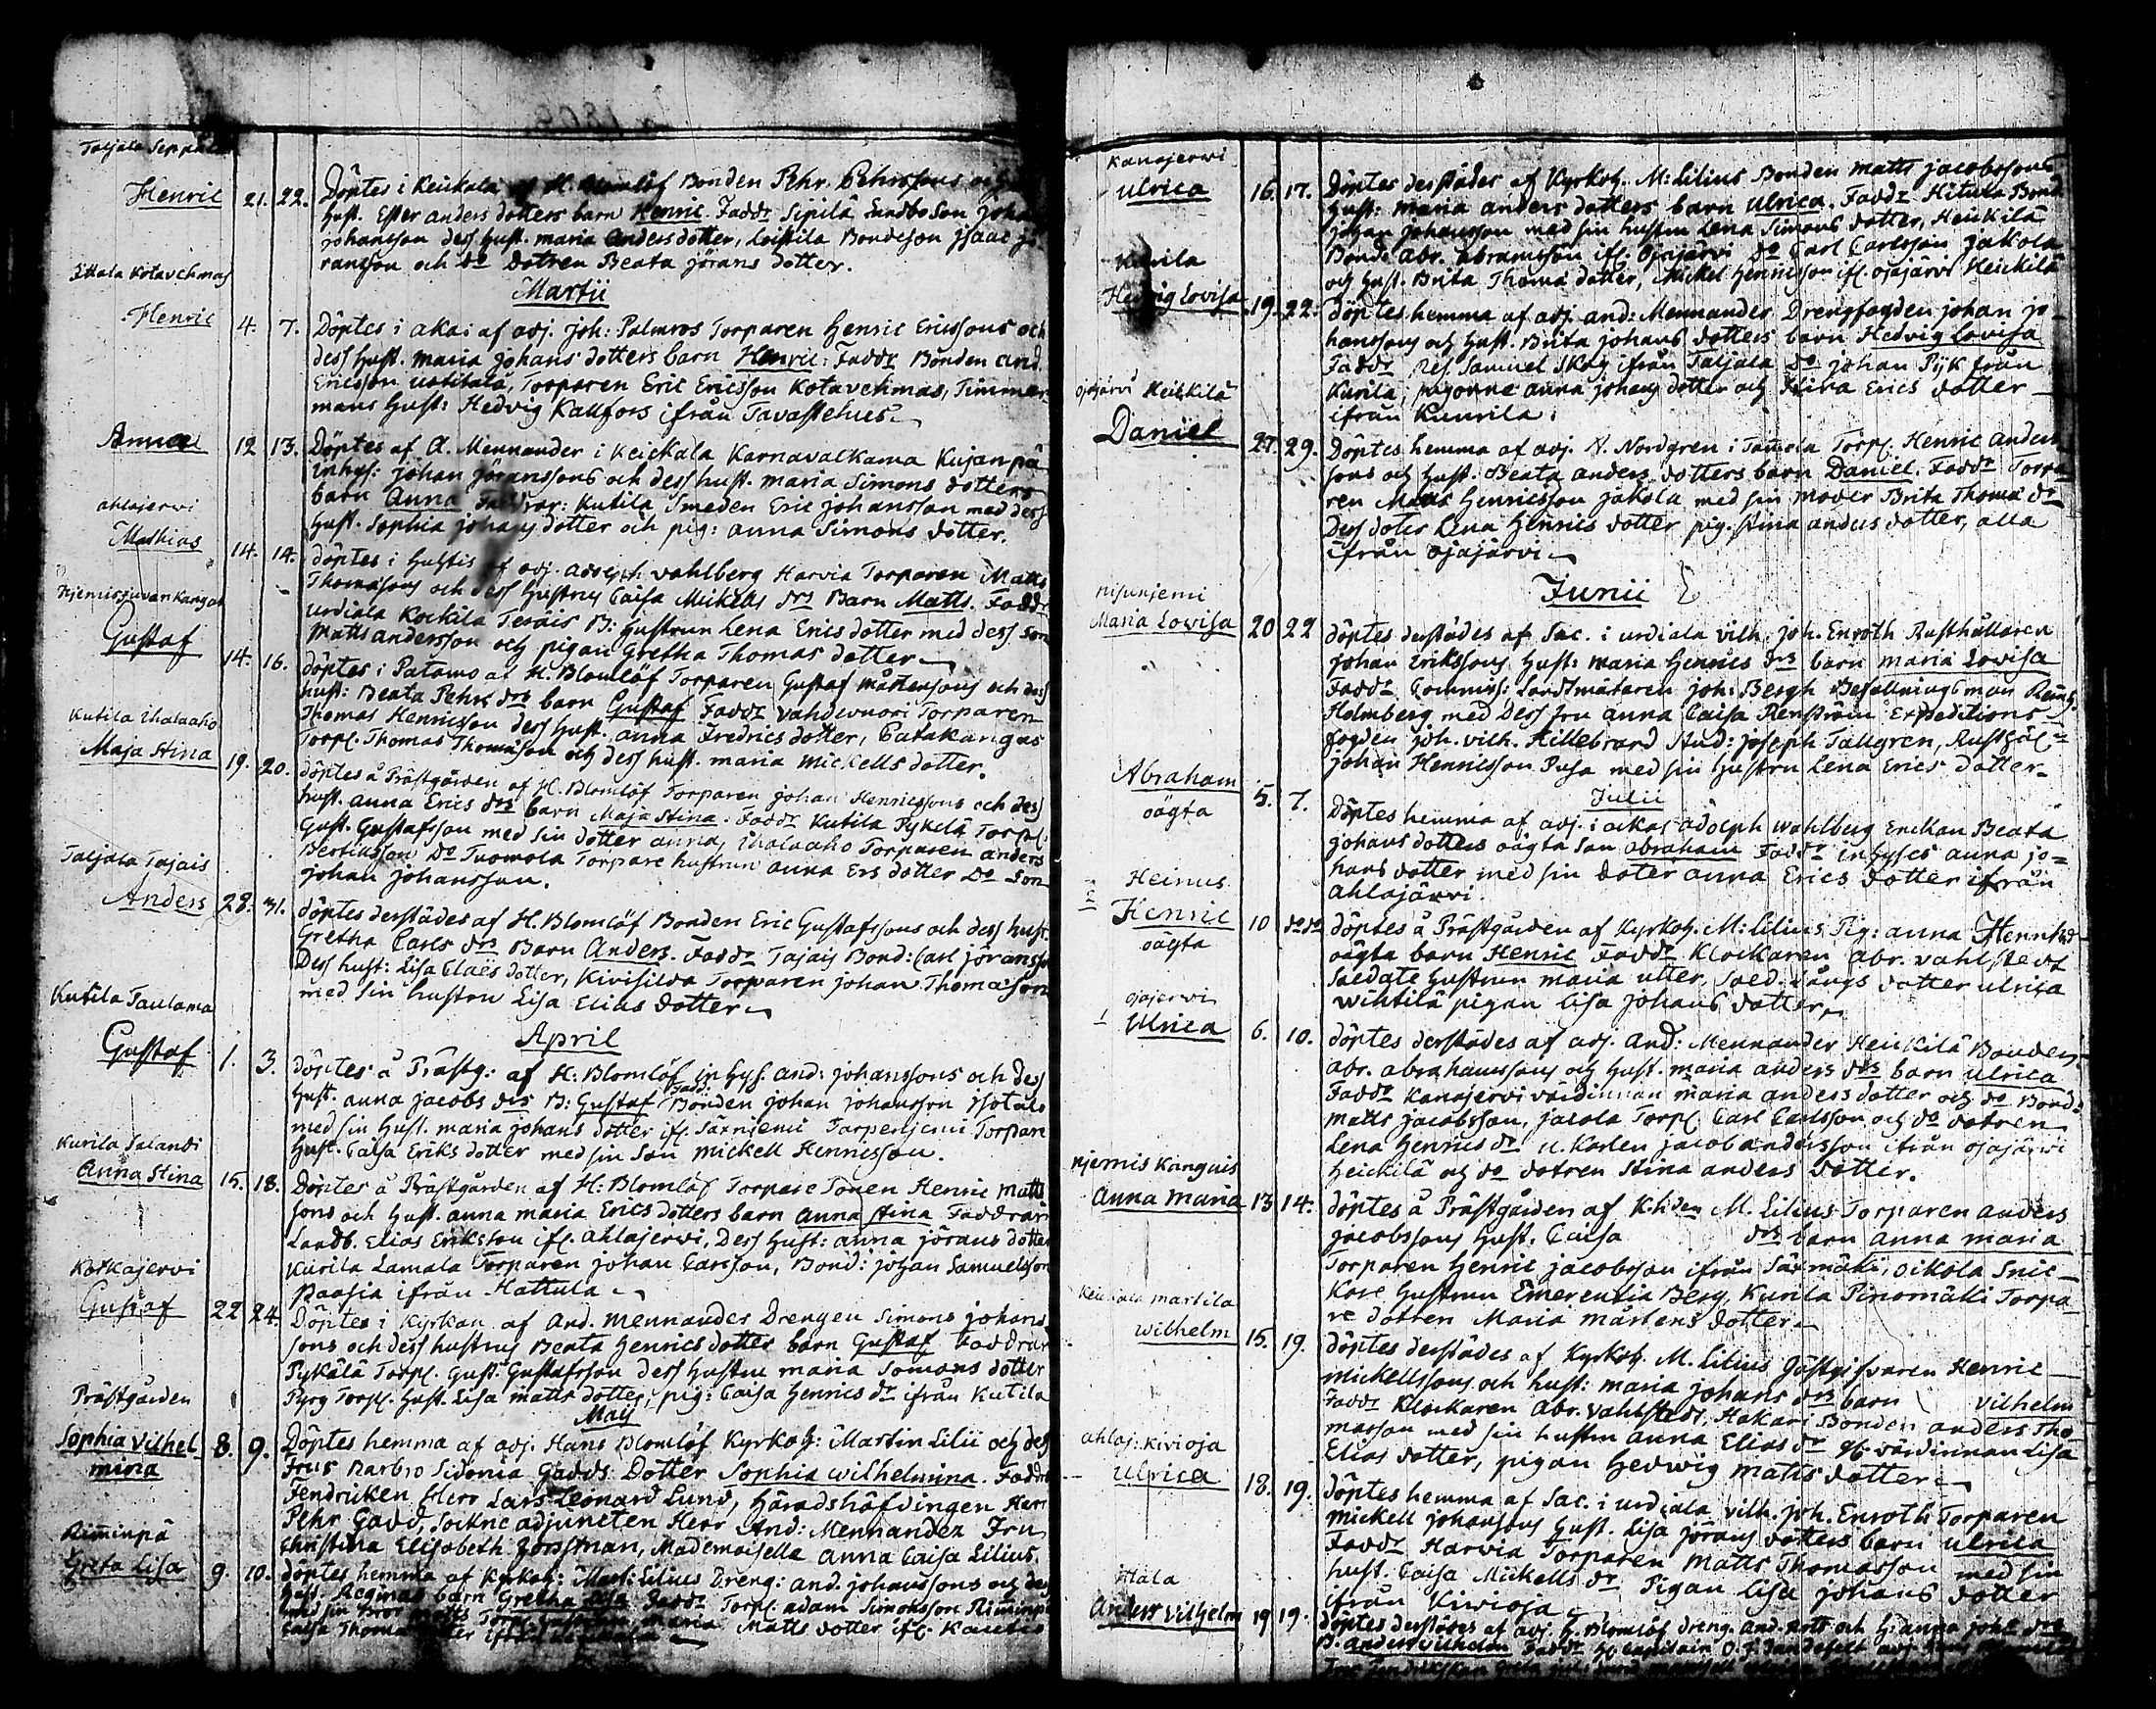 Taljala Seppälä
Henric 21. 22. Döptes i Keickala af H. Blomlöf Bonden Pehr Pehrssons och
hust. Ester anders dotters barn Henric. Faddr Sipilä Landbo Son joha
johansson dess hust. maria Anders dotter, Leistila Bondeson jsaac jö
ransson och do dotren Beata jörans dotter.
Ittala Kotavehmas
Martii
Henric 4. 7. Döptes i akai af adj. joh: Palmros Torparen Henric Ericssons och
dess hust. maria johans dotters barn Henric: Faddr Bonden and.
Ericsson uotitala, Torparen Eric Ericsson Kotavehmas, Timmer
mans hust: Hedvig Kallfors ifrån Tavastehus
Anna 12 13. Döptes af A. Mennander i Keickala Karnavalkama Kujanpä
inhys: johan jöranssons och dess hust. maria Simons dotters
barn Anna Faddrar: Kutila Smeden Eric johansson med dess
hust. Sophia johans dotter och pig: anna Simons dotter.
ahlajerwi
Mathias 14. 14. döptes i Huhtis af adj. adolph wahlberg Harvia Torparen Matts
Thomassons och dess hustrus Caisa Mickells drs Barn Matts. Faddr
urdiala Kockila Teräis B: hustrun Lena Erics dotter med dess Son
matts andersson och pigan Gretha Thomas dotter
Njemis juvan Kangas
Gustaf 14. 16. döptes i Patamo af H. Blomlöf Torparen Gustaf mårtensons och dess
hust: Beata Pehrs drs barn Gustaf Faddr vahdevuori Torparen
Thomas Henricsson dess hust. anna Fredrics dotter, Patakangas
Torp. Thomas Thomasson och dess hust. maria mickells dotter.
Kutila Ihalaaho
Maja Stina 19. 20. döptes å Prästgården af H. Blomlöf Torparen johan Henricssons och dess
hust. anna Erics drs barn Maja Stina. Faddr Kutila Pykelä Torp.
Gust. Gustafsson med sin dotter anna, Ihalaaho Torparen anders
Bertilsson do Tuomola Torpare hustrun anna Ers dotter do Son
johan johansson.
Taljala Tajais
Anders 28. 31. döptes derstädes af H. Blomlöf Bonden Eric Gustafssons och dess hust.
Gretha Carls drs Barn Anders. Faddr Tajais Bond: Carl jöransson
Dess hust: Lisa Claës dotter, Kivisilda Torparen johan Thomasson
med sin hustru Lisa Elias dotter
Kutila Taulama
April
Gustaf 1. 3. döptes å Prästg: af H: Blomlöf inhys. and: johanssons och dess
hust. anna jacobs drs B: Gustaf Fadd: Bonden johan johansson jsotalo
med sin hust. maria johans dotter ifr. Säxniemi Tarpenjemi Torpare
hust. Caisa Eriks dotter med sin Son mickell Hennicsson.
Kurila Salandi
Anna Stina 15. 18. Döptes å Prästgården af H: Blomlöf Torpare Sonen Henric matts
sons och hust. anna maria Erics dotters barn anna stina Faddrar
Landb. Elias Eriksson ifr. ahlajerwi, dess hust: anna jörans dotter
Kurila Lamala Torparen johan Carlsson, Bond: johan Samuelsson
Paasia ifrån Hattula
Korkajervi
Gustaf 22 24. Döptes i Kyrkan af And. mennander Drengen Simons johans
sons och dess hustrus Beata Henrics dotter barn Gustaf Faddrar
Pykälä Torp. Gust. Gustafsson dess hustru maria Somons dotter
Pyrg Torp. hust. Lisa matts dotter, pig: Caisa Henrics dr ifrån Kutila
Prästgården
Maij
Sophia Vilhel
mina 8. 9. Döptes hemma af adj. Hans Blomlöf Kyrkoh: Martin Lilii och dess
Frus Barbro Sidonia Gadds Dotter Sophia Wilhelmina. Faddr
Fendricken Herr Lars Leonard Lund, Häradshöfdingen Herr
Pehr Gadd, Sockne adjuncten Herr And: Mennander Fru
Christina Elisabeth Forssman, Mademoiselle Anna Caisa Lilius.
Riminpä
Greta Lisa 9. 10. döptes hemma af Kyrkoh: Mart: Lilius Dreng: and. johanssons och dess
hust. Reginas barn Gretha Lisa Faddr Torp. adam Simonsson Riminpä
med sin Bror Matts Torp. maria Matts dotter ifr. Kautio
Caisa Thomas dotter
Kanajerwi
Ulrica 16. 17. Döptes derstädes af Kyrkoh. M: Lilius Bonden matts jacobssons
hust: maria anders dotters barn Ulrica. Faddr Hitula Bond
johan johansson med sin hustru Lena Simons dotter, Heickilä
Bond: abr. abramsson ifr. Ojajärvi do Carl Carlsson Jakola
och hust. Brita Thoma dotter, Mickel Henricsson ifr. ojajärvi Heickilä
Kurila
Hedvig Lovisa 19. 22. Döptes hemma af adj. and: Mennander Drengfogden johan jo
hanssons och hust. Brita johans dotters barn Hedvig Lovisa
Faddr Ref. Samuel Skog ifrån Taljala do johan Pijk från
Kurila, pigorne anna johans dotter och Stina Erics dotter
ifrån Kuurila.
ojajärvi Heickilä
Daniel 27. 29. Döptes hemma af adj. N. Nordgren i Tamola Torp. Henric anders
sons och hust. Beata anders dotters barn Daniel. Faddr Torpa
ren Matts Henricsson jakola med sin moder Brita Thoma dr
Dess doter Lena Henrics dotter pig. Stina anders dotter, alla
ifrån ojajärvi
Junii
nisunjemi
Maria Lowisa 20 22 döptes derstädes af Sac. i urdiala vilh. joh. Enroth Rusthållaren
johan Erikssons hust: maria Henrics drs barn maria Lowisa
Faddr Commiss: Landtmätaren joh: Bergh Befallningsman Reinh.
Holmberg med Dess fru anna Caisa Renström Expeditions
fogden joh. vilh. Hillebrard Stud: joseph Tallgren, Rusthål=
johan Hennicsson Pusa med sin hustru Lena Erics dotter
Julii
Abraham
oägta 5. 7. Döptes hemma af adj. i ackas adolph Wahlberg Enckan Beata
johans dotters oägta son abraham Faddr inhyses anna jo=
hans dotter med sin doter anna Erics dotter ifrån
ahlajärvi.
Heinus
Henric
oägta 10 do do döptes å Prästgården af Kyrkoh. M: Lilius Pig: anna
oägta barn Henric Faddr Klockaren abr. vahlstedt
Saldate hustrun maria utter, Sold. Långs dotter ulrica
wihtilä pigan Lisa johans dotter
ojajerwi
Ulrica 6. 10. döptes derstädes af adj. And: Mennander Heickilä Bonden
abr. abrahamssons och hust. maria anders drs barn Ulrica
Faddr Kanajervi värdinnan maria anders dotter och do Bond:
matts jacobsson, jacola Torp. Carl Carlsson och do dotren
Lena Henrics dr u. Karlen jacob andersson ifrån ojajärvi
Heickilä och do dotren Stina anders dotter.
Njemis Kanguis
Anna Maria 13 14. döptes å Prästgården af K.hden M. Lilius Torparen anders
jacobssons hust. Caisa drs barn anna maria
Torparen Henric jacobsson ifrån Saxmäki, oikola Snic
kare hustrun Emerentia Berg, Kurila Pinomäki Torpa
re dotren Maria mårtens dotter
Keickala martila
Wilhelm 15. 19. döptes derstädes af Kyrkoh. M. Lilius Gästgifvaren Henric
mickellssons och hust: maria johans drs barn vilhelm
Faddr Klockaren abr. vahlstedt, Hakari Bonden anders Tho
masson med sin hustru anna Elias dr gl. värdinnan Lisa
Elias dotter, pigan Hedwig matts dotter
ahlaj. Kivioja
Ulrica 18. 19. döptes hemma af Sac. i urdiala vilh. joh. Enroth Torparen
mickell johanssons hust. Lisa jörans dotters barn ulrica
Faddr Harvia Torparen Matts Thomasson med sin
hust. Caisa Mickells dr Pigan Lisa johans dotter
ifrån Kiwioja
ittala
Anders Vilhelm 19 19. döptes derstädes af adj. H. Blomlöf dreng. and. och H: anna joh. drs
B. anders vilhelm Faddr